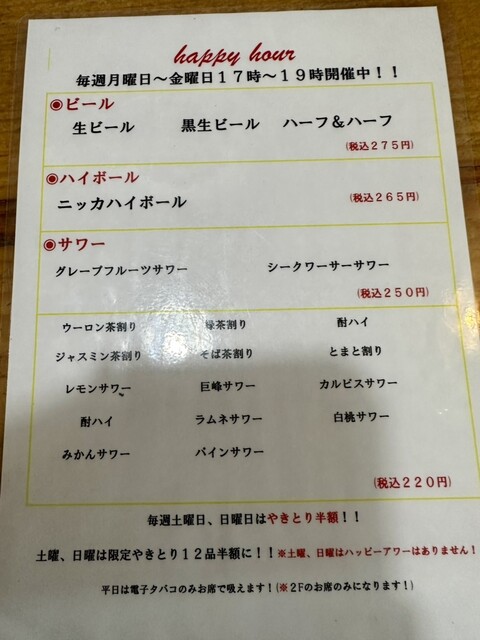 happy hour
毎週月曜日～金曜日１７時～１９時開催中！！
◉ビール
生ビール　黒生ビール　ハーフ＆ハーフ
(税込２７５円)
◉ハイボール
ニッカハイボール　(税込２６５円)
◉サワー
グレープフルーツサワー　シークワーサーサワー
(税込２５０円)
ウーロン茶割り　緑茶割り　酎ハイ
ジャスミン茶割り　そば茶割り　とまと割り
レモンサワー　巨峰サワー　カルピスサワー
酎ハイ　ラムネサワー　白桃サワー
みかんサワー　パインサワー
(税込２２０円)
毎週土曜日、日曜日はやきとり半額！！
土曜、日曜は限定やきとり１２品半額に！！※土曜、日曜はハッピーアワーはありません！
平日は電子タバコのみお席で吸えます！(※２Fのお席のみになります！)